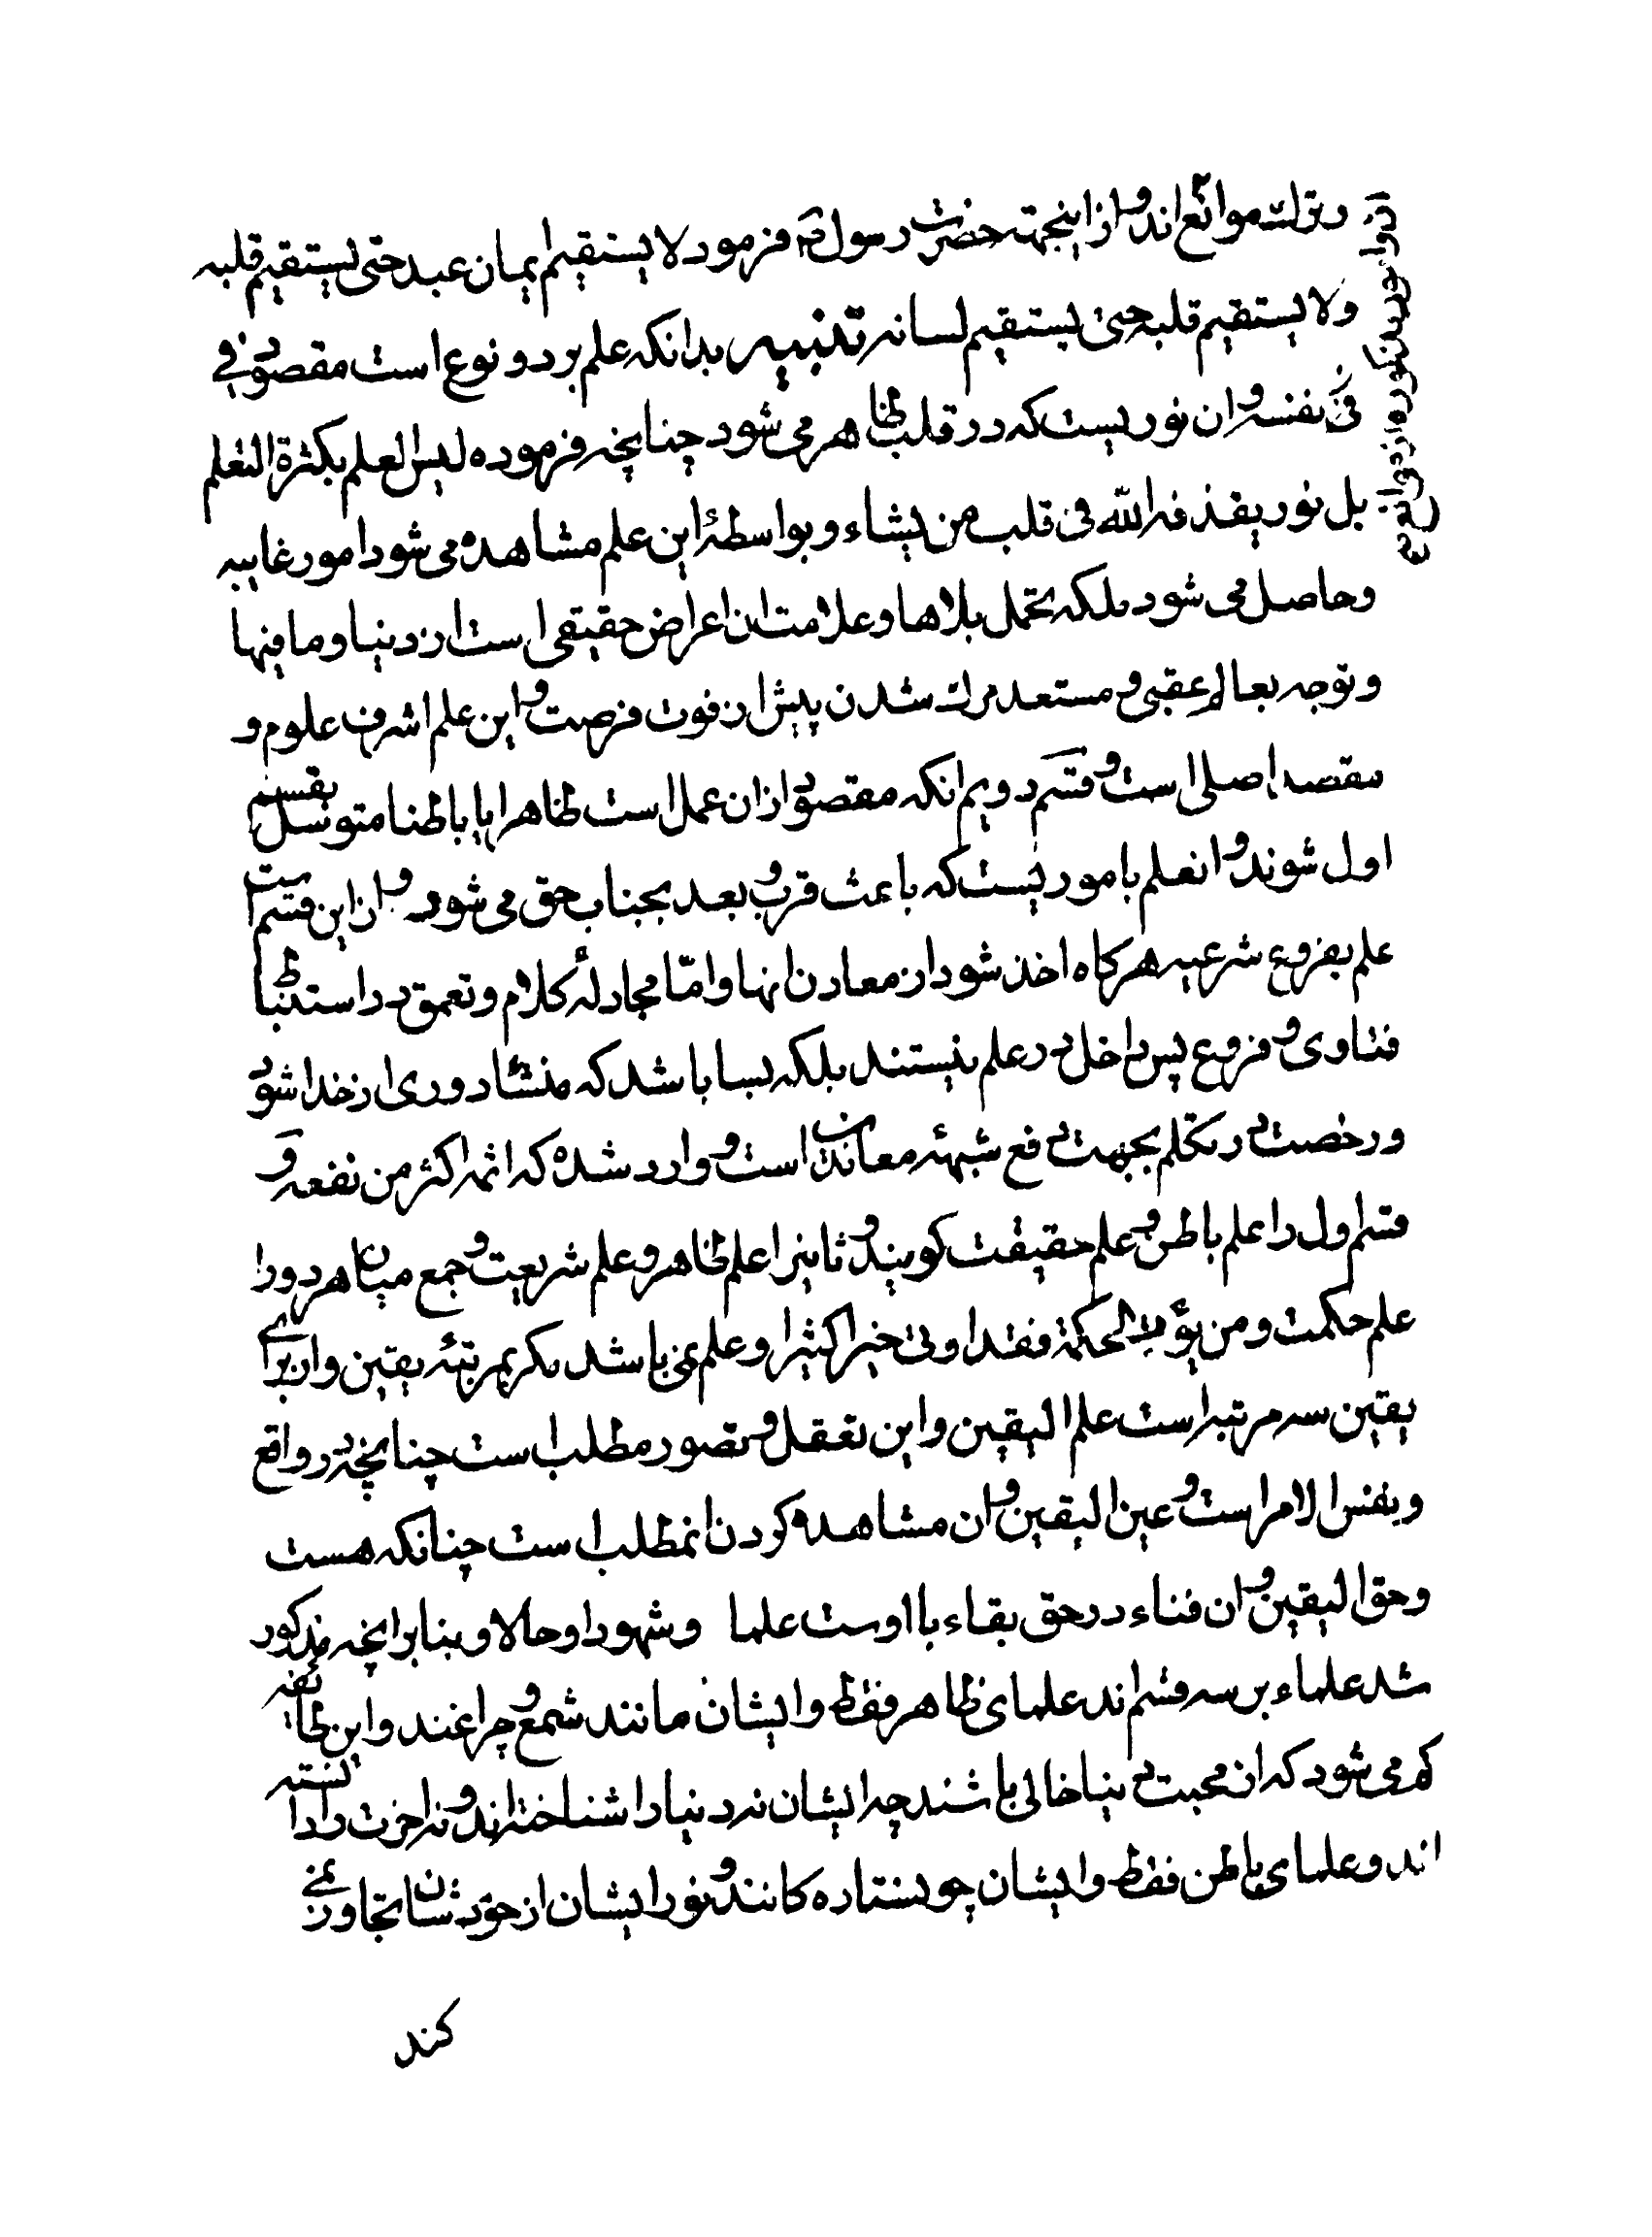 وترك موانع اند و از اینجهت حضرت رسول ص فرمود لا یستقیم ایمان عبد حتی یستقیم قلبه
ولا یستقیم قلبه حتی یستقیم لسانه تنبیه بدانکه علم بر دو نوع است مقصود فی
فی نفسه و ان نوریست که در قلب ظاهر می شود چنانچه فرموده لیس العلم بکثرة التعلم
بل نور یقذفه الله فی قلب من یشاء و بواسطهٔ این علم مشاهده می شود امور غایبه
وحاصل می شود ملکه تحمل بلاها و علامت ان اعراض حقیقی است از دنیا و ما فیها
و توجه بعالم عقبی و مستعد مرك شدن پیش از فوت فرصت و این علم اشرف علوم و
مقصد اصلی است و قسم دویم انکه مقصود ازان عمل است ظاهرا یا باطنا متوسل بقسم
اول شوند و انعلم بامور یست که باعث قرب و بعد بجناب حق می شود و از این قسم است
علم بفروع شرعیه هرکاه اخذ شود از معادن انها و امّا مجادلهٔ کلام و تعمق در استنباط
فتاوی و فروع پس داخل در علم نیستند بلکه بسا باشد که منشأ دوری از خدا شود
و رخصت در تکلم بجهت دفع شبههٔ معاندین است و وارد شده که اثمه اکثر من نفعه و
قسم اول را علم باطن و علم حقیقت کویند و ثانیرا علم ظاهر و علم شریعت و جمع میان هر دو را
علم حکمت و من یؤت الحکمة فقد اوتی خیرا کثیرا و علم نمی باشد مکر بمرتبهٔ یقین و از برای
یقین سه مرتبه است علم الیقین و این تعقل و تصور مطلب است چنانچه در واقع
و بنفس الامر است و عین الیقین و ان مشاهده کردن انمطلب است چنانکه هست
و حق الیقین و ان فناء در حق بقاء با اوست علما و شهودا و حالا و بنابر انچه مذکور
شد علماء بر سه قسم اند علمای ظاهر فقط و ایشان مانند شمع و چراغند و این طایفه
کم می شود که از محبت دنیا خالی باشند چه ایشان نه دنیا را شناخته اند و نه اخرت را دانسته
اند و علمای باطن فقط و ایشان چو ستاره کانند و نور ایشان از خود شان تجاوز نمی
کند